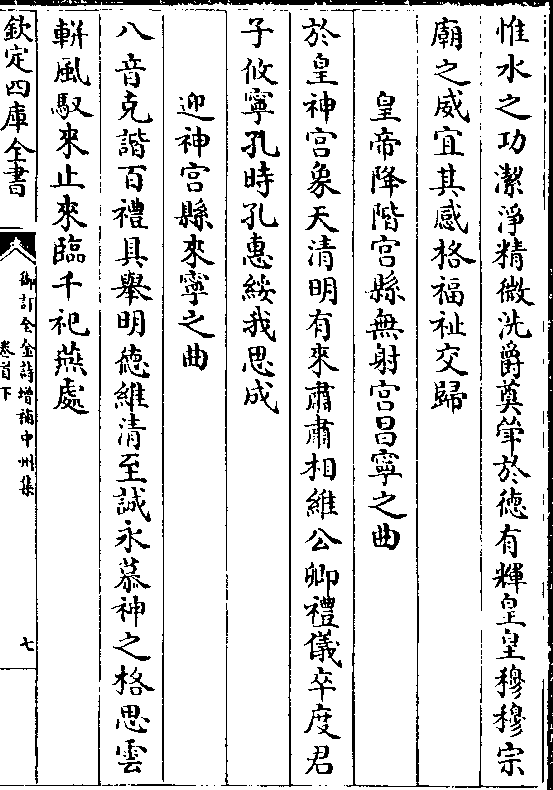 惟水之功潔淨精微洗爵奠斝於徳有輝皇皇穆穆宗
廟之威宜其感格福祉交歸
皇帝降階宫縣無射宫昌寧之曲
於皇神宫象天清明有來肅肅相維公卿禮儀卒度君
子攸寧孔時孔惠綏我思成
迎神宫縣來寧之曲
八音克諧百禮具舉明徳維清至誠永慕神之格思雲
軿風馭來止來臨千祀燕處
欽定四庫全書
御訂全金詩增補中州集
卷首下
七